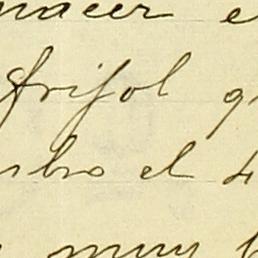 nacer e
frijol q
el 4
muy